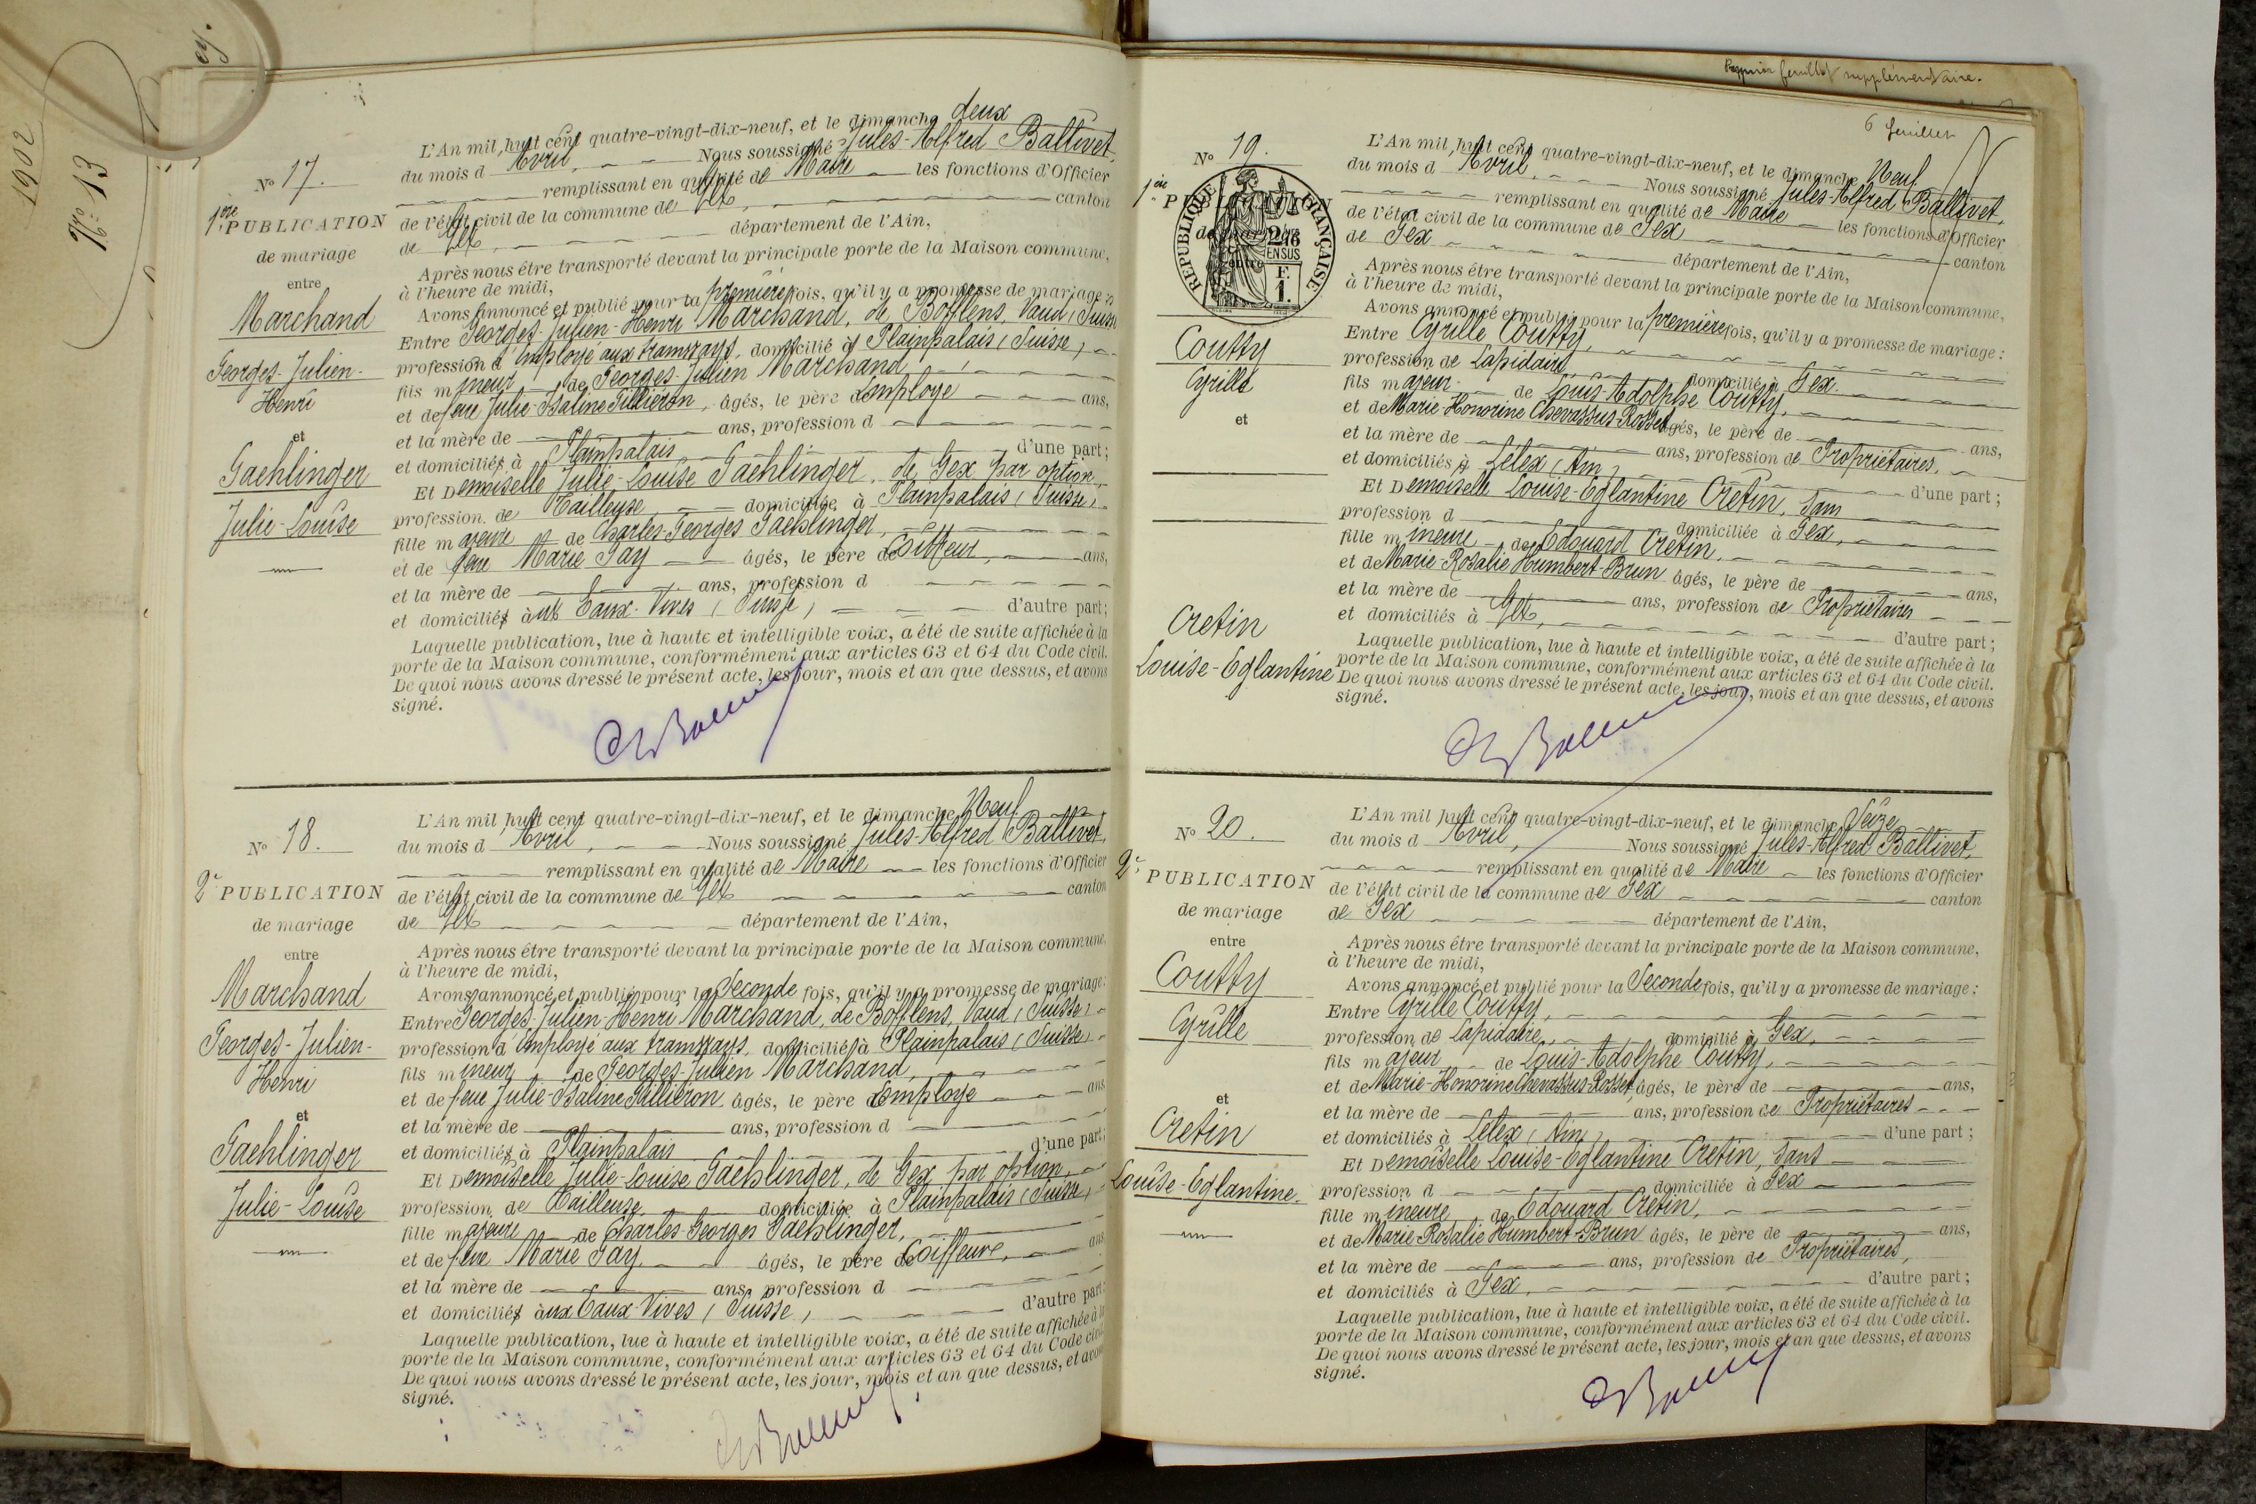 1902
N° 13
Premier feuillet supplémentaire.
6e feuillet
N° 17.
1ère PUBLICATION
de mariage
entre
Marchand
Georges-Julien-
Henri
et
Gaehlinger
Julie-Louise
L'An mil huit cent quatre-vingt-dix-neuf, et le dimanche deux
du mois d'Avril, Nous soussigné Jules-Alfred Ballivet,
remplissant en qualité de Maire les fonctions d'Officier
de l'état civil de la commune de Gex, canton
de Gex, département de l'Ain,
Après nous être transporté devant la principale porte de la Maison commune,
à l'heure de midi,
Avons annoncé et publié pour la première fois, qu'il y a promesse de mariage :
Entre Georges-Julien-Henri Marchand, de Bofflens, Vaud (Suisse)
profession d'employé aux tramways, domicilié à Plainpalais (Suisse),
fils mineur de Georges-Julien Marchand,
et de feue Julie-Isaline Tillieron, âgés, le père d'Employé ans,
et la mère de ans, profession d
et domiciliés à Plainpalais d'une part;
Et Demoiselle Julie-Louise Gaehlinger, de Gex par option,
profession de Tailleuse, domiciliée à Plainpalais (Suisse),
fille majeure de Charles-Georges Gaehlinger,
et de feue Marie Gay âgés, le père de Coiffeur, ans,
et la mère de ans, profession d
et domiciliés aux Eaux-Vives (Suisse), d'autre part;
Laquelle publication, lue à haute et intelligible voix, a été de suite affichée à la
porte de la Maison commune, conformément aux articles 63 et 64 du Code civil.
De quoi nous avons dressé le présent acte, les jour, mois et an que dessus, et avons
signé.
N° 18.
2e PUBLICATION
de mariage
entre
Marchand
Georges-Julien-
Henri
et
Gaehlinger
Julie-Louise
L'An mil huit cent quatre-vingt-dix-neuf, et le dimanche Neuf
du mois d'Avril, Nous soussigné Jules-Alfred Ballivet,
remplissant en qualité de Maire les fonctions d'Officier
de l'état civil de la commune de Gex canton
de Gex département de l'Ain,
Après nous être transporté devant la principale porte de la Maison commune,
à l'heure de midi,
Avons annoncé et publié pour la Seconde fois, qu'il y a promesse de mariage :
Entre Georges-Julien-Henri Marchand, de Bofflens, Vaud (Suisse),
profession d'employé aux tramways, domicilié à Plainpalais (Suisse),
fils mineur de Georges-Julien Marchand,
et de feue Julie-Isaline Tillieron, âgés, le père d'Employé ans
et la mère de ans, profession d
et domiciliés à Plainpalais d'une part;
Et Demoiselle Julie-Louise Gaehlinger, de Gex par option,
profession de Tailleuse, domiciliée à Plainpalais (Suisse),
fille majeure de Charles-Georges Gaehlinger,
et de feue Marie Gay âgés, le père de Coiffeure, ans
et la mère de ans, profession d
et domiciliés aux Eaux-Vives (Suisse), d'autre part;
Laquelle publication, lue à haute et intelligible voix, a été de suite affichée à la
porte de la Maison commune, conformément aux articles 63 et 64 du Code civil.
De quoi nous avons dressé le présent acte, les jour, mois et an que dessus, et avons
signé.
N° 19.
1ère PUBLICATION
de mariage
entre
RÉPUBLIQUE FRANÇAISE
2/10 EN SUS
F. 1.
Coutty
Cyrille
et
Cretin
Louise-Eglantine
L'An mil huit cent quatre-vingt-dix-neuf, et le dimanche Neuf
du mois d'Avril, Nous soussigné Jules-Alfred Ballivet,
remplissant en qualité de Maire les fonctions d'Officier
de l'état civil de la commune de Gex canton
de Gex département de l'Ain,
Après nous être transporté devant la principale porte de la Maison commune,
à l'heure de midi,
Avons annoncé et publié pour la première fois, qu'il y a promesse de mariage :
Entre Cyrille Coutty,
profession de Lapidaire, domicilié à Gex.
fils majeur de Louis-Adolphe Coutty,
et de Marie-Honorine Chevassus-Rosset, âgés, le père de ans,
et la mère de ans, profession de Propriétaires,
et domiciliés à Lélex (Ain) d'une part;
Et Demoiselle Louise-Eglantine Cretin, sans
profession d domiciliée à Gex,
fille mineure de Edouard Cretin,
et de Marie-Rosalie Humbert-Brun âgés, le père de ans,
et la mère de ans, profession de Propriétaires
et domiciliés à Gex, d'autre part;
Laquelle publication, lue à haute et intelligible voix, a été de suite affichée à la
porte de la Maison commune, conformément aux articles 63 et 64 du Code civil.
De quoi nous avons dressé le présent acte, les jour, mois et an que dessus, et avons
signé.
N° 20.
2e PUBLICATION
de mariage
entre
Coutty
Cyrille
et
Cretin
Louise-Eglantine.
L'An mil huit cent quatre-vingt-dix-neuf, et le dimanche Seize
du mois d'Avril, Nous soussigné Jules-Alfred Ballivet,
remplissant en qualité de Maire les fonctions d'Officier
de l'état civil de la commune de Gex canton
de Gex département de l'Ain,
Après nous être transporté devant la principale porte de la Maison commune,
à l'heure de midi,
Avons annoncé et publié pour la Seconde fois, qu'il y a promesse de mariage :
Entre Cyrille Coutty,
profession de Lapidaire, domicilié à Gex,
fils majeur de Louis-Adolphe Coutty,
et de Marie-Honorine Chevassus-Rosset, âgés, le père de ans,
et la mère de ans, profession de Propriétaires
et domiciliés à Lélex (Ain) d'une part;
Et Demoiselle Louise-Eglantine Cretin, sans
profession d domiciliée à Gex
fille mineure de Edouard Cretin,
et de Marie-Rosalie Humbert-Brun âgés, le père de ans,
et la mère de ans, profession de Propriétaires,
et domiciliés à Gex, d'autre part;
Laquelle publication, lue à haute et intelligible voix, a été de suite affichée à la
porte de la Maison commune, conformément aux articles 63 et 64 du Code civil.
De quoi nous avons dressé le présent acte, les jour, mois et an que dessus, et avons
signé.